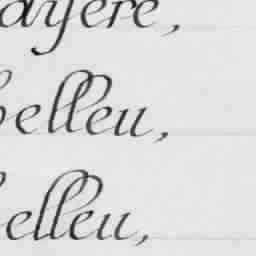 ayere,
elleu,
elleu,